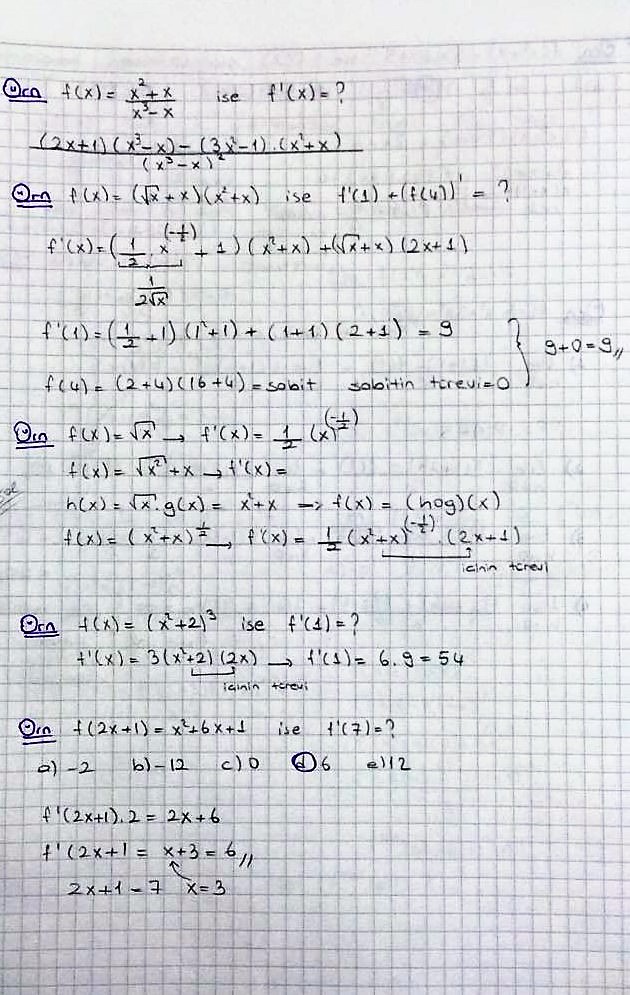 Örn f(x) = x²+x / x³-x ise f'(x) = ?
(2x+1)(x³-x) - (3x²-1).(x²+x) / (x³-x)²
Örn f(x) = (√x + x)(x²+x) ise f'(1) + (f(4))' = ?
f'(x) = (1/2 . x^(-1/2) + 1)(x²+x) + (√x + x)(2x+1)
1/2√x
f'(1) = (1/2 + 1)(1²+1) + (1+1)(2+1) = 9
f(4) = (2+4)(16+4) = sabit sabitin türevi = 0 } 9+0 = 9,,
Örn f(x) = √x → f'(x) = 1/2 (x)^(-1/2)
f(x) = √x² + x → f'(x) =
h(x) = √x . g(x) = x²+x → f(x) = (hog)(x)
f(x) = (x²+x)^1/2 → f'(x) = 1/2 (x²+x)^(-1/2) . (2x+1)
içinin türevi
Örn f(x) = (x²+2)³ ise f'(1) = ?
f'(x) = 3(x²+2)(2x) → f'(1) = 6.9 = 54
içinin türevi
Örn f(2x+1) = x²+6x+1 ise f'(7) = ?
a) -2 b) -12 c) 0 d) 6 e) 12
f'(2x+1).2 = 2x+6
f'(2x+1 = x+3 = 6,,
2x+1 - 7 x=3